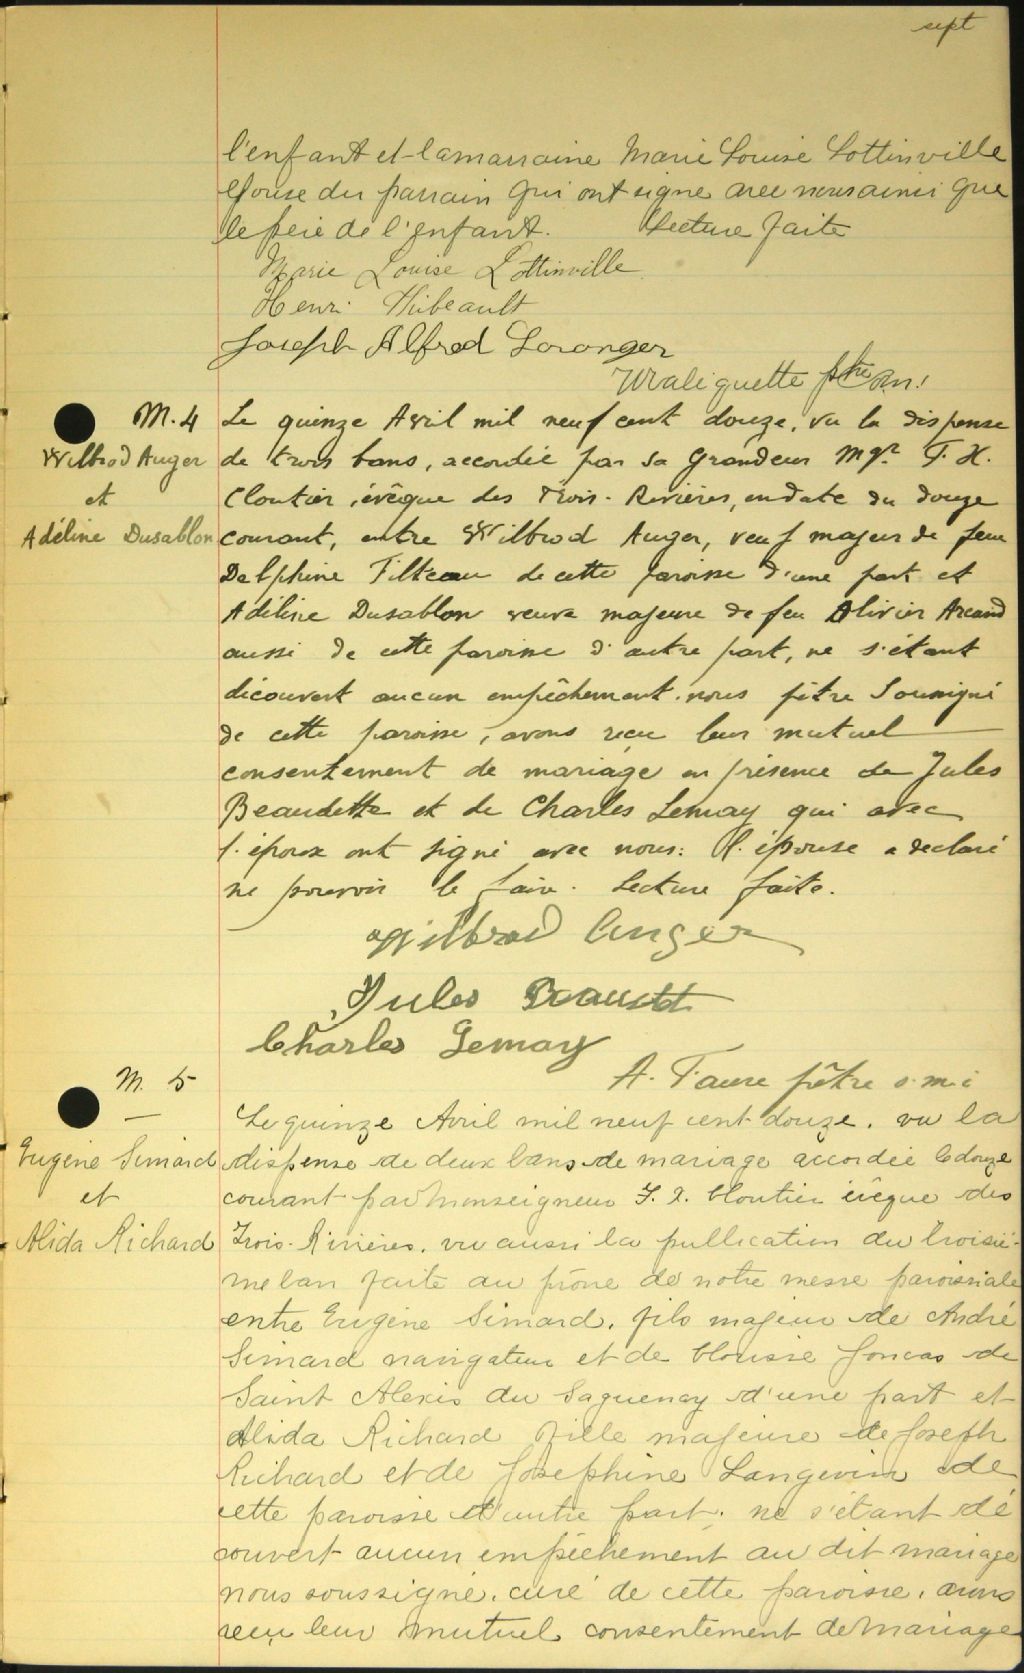 sept
l'enfant et la marraine Marie Louise Lottinville
épouse du parrain qui ont signé avec nous ainsi que
le père de l'enfant. Lecture faite
Marie Louise Lottinville
Henri Thibeault
Joseph Alfred Loranger
ptre
M. 4
Wilbrod Auger
et
Adéline Dusablon
Le quinze Avril mil neuf cent douze, vu la dispense
de trois bans, accordée par sa Grandeur Mgr F. X.
Cloutier, évêque des Trois-Rivières, en date du douze
courant, entre Wilbrod Auger, veuf majeur de feue
Delphine Filteau de cette paroisse d'une part et
Adéline Dusablon veuve majeure de feu Olivier Arcand
aussi de cette paroisse d'autre part, ne s'étant
découvert aucun empêchement. nous prêtre soussigné
de cette paroisse, avons reçu leur mutuel
consentement de mariage en présence de Jules
Beaudette et de Charles Lemay qui avec
l'époux ont signé avec nous: l'épouse a declaré
ne pouvoir le faire. Lecture faite.
Wilbrod Auger
Jules Beaudet
Charles Lemay
A. Faure prêtre s.m.i
M. 5
Eugène Simard
et
Alida Richard
Le quinze Avril mil neuf cent douze. vu la
dispense de deux bans de mariage accordée le douze
courant par Monseigneur F. X. Cloutier évêque des
Trois-Rivières. vu aussi la publication du troisiè-
me ban faite au prône de notre messe paroissiale
entre Eugène Simard, fils majeur de André
Simard navigateur et de de
Saint Alexis du Saguenay d'une part et
Alida Richard fille majeure de Joseph
Richard et de Joséphine Langevin de
cette paroisse d'autre part; ne s'étant dé
couvert aucun empêchement au dit mariage
nous soussigné, curé de cette paroisse, avons
reçu leur mutuel consentement de mariage